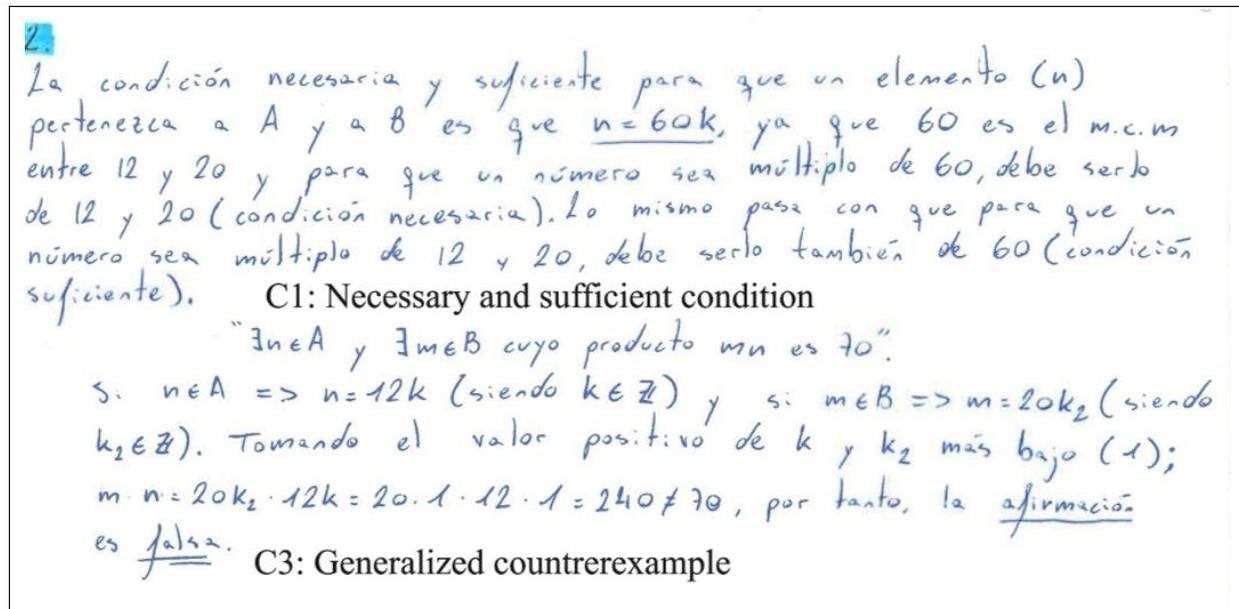 2.
La condición necesaria y suficiente para que un elemento (n)
pertenezca a A y a B es que n = 60k, ya que 60 es el m.c.m
entre 12 y 20 y para que un número sea múltiplo de 60, debe serlo
de 12 y 20 (condición necesaria). Lo mismo pasa con que para que un
número sea múltiplo de 12 y 20, debe serlo también de 60 (condición
suficiente). C1: Necessary and sufficient condition
"∃n∈A y ∃m∈B cuyo producto mn es 70".
Si n∈A => n=12k (siendo k∈ℤ) y si m∈B => m=20k₂ (siendo
k₂∈ℤ). Tomando el valor positivo de k y k₂ más bajo (1);
m·n = 20k₂·12k = 20·1·12·1 = 240 ≠ 70, por tanto, la afirmación
es falsa. C3: Generalized countrerexample